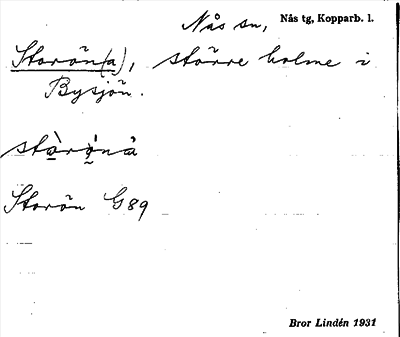 Nås sn, Nås tg, Kopparb. l.
Storön(a), större holme i
Bysjön.
Storön G89
Bror Lindén 1931